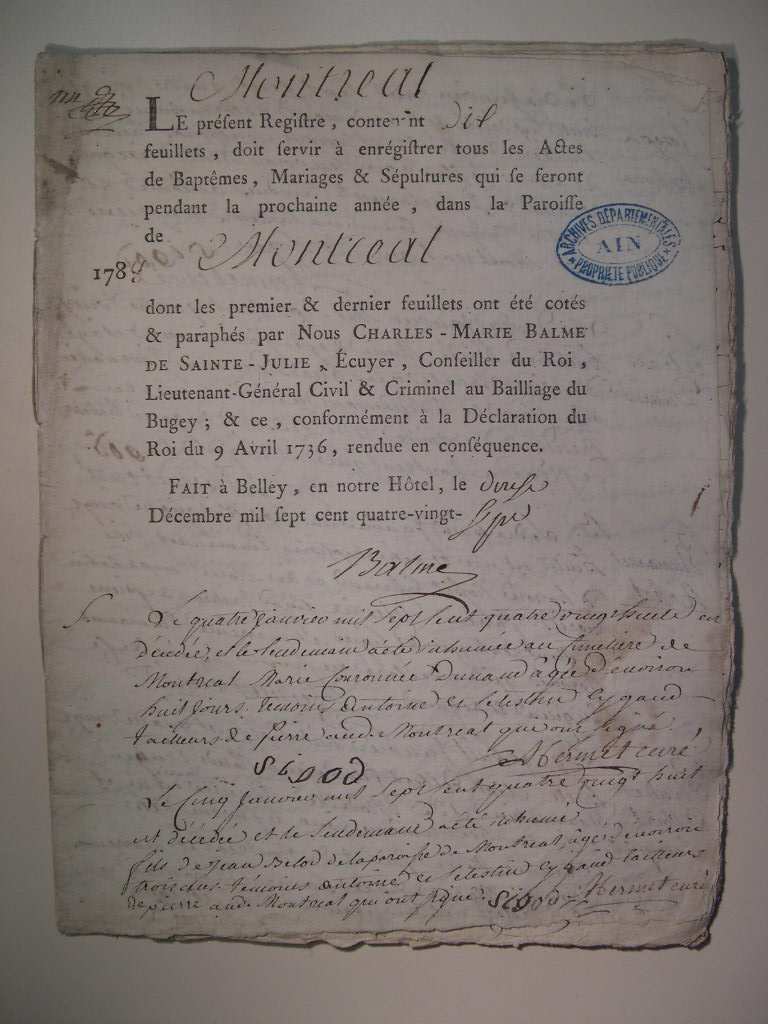 Montreal
LE préſent Regiſtre, contenant dix
feuillets, doit ſervir à enrégiſtrer tous les Actes
de Baptêmes, Mariages & Sépultures qui ſe feront
pendant la prochaine année, dans la Paroiſſe
de Montreal
ARCHIVES DÉPARTEMENTALES
AIN
PROPRIÉTÉ PUBLIQUE
1788
dont les premier & dernier feuillets ont été cotés
& paraphés par Nous CHARLES-MARIE BALME
DE SAINTE-JULIE, Écuyer, Conſeiller du Roi,
Lieutenant-Général Civil & Criminel au Bailliage du
Bugey; & ce, conformément à la Déclaration du
Roi du 9 Avril 1736, rendue en conſéquence.
FAIT à Belley, en notre Hôtel, le douze
Décembre mil ſept cent quatre-vingt-
ſept
Balme
S.
Le quatre janvier mil sept cent quatre vingt huit est
décédée, et le lendemain a été inhumée au cimetière de
Montreal Marie Couronnée Dunand âgée d'environ
huit jours. témoins antoine et celestin eygaud
tailleurs de pierre aud. Montreal qui ont signé
Hermet curé
Le cinq janvier mil sept cent quatre vingt huit
est décédée et le lendemain a été inhumé
fils de jean Belod de la paroisse de Montreal, âgé d'environ
trois ans témoins antoine et celestin eygaud tailleurs
de pierre aud. Montreal qui ont signé. Hermet curé